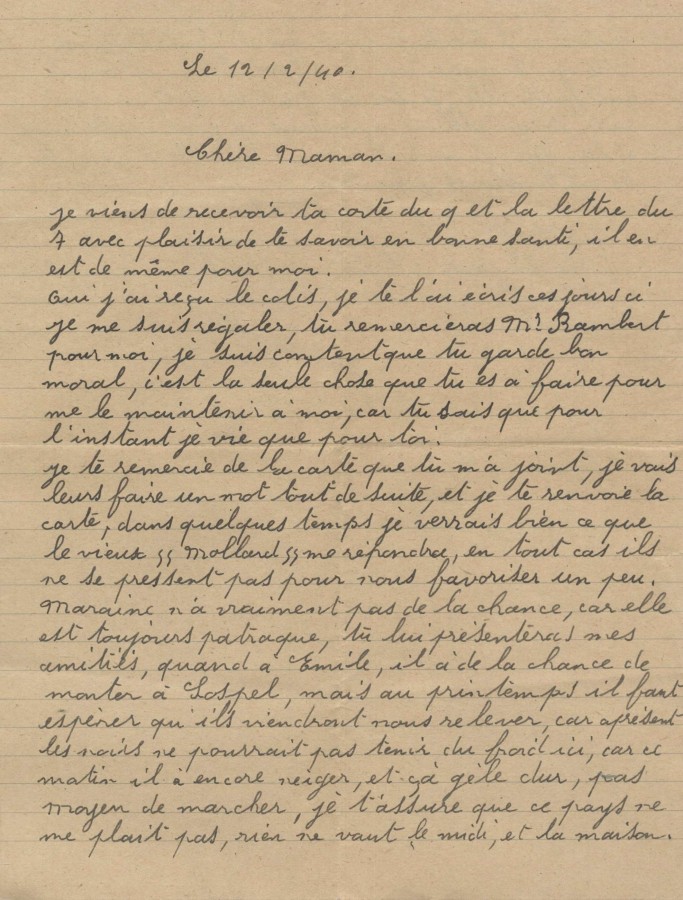 Le 12/2/40.
Chère Maman.
je viens de recevoir ta carte du 9 et la lettre du
7 avec plaisir de te savoir en bonne santé, il en
est de même pour moi.
Oui j'ai reçu le colis, je te l'ai écris ces jours ci
je me suis régaler, tu remercieras Mr Rambert
pour moi, je suis content que tu garde bon
moral, c'est la seule chose que tu es à faire pour
me le maintenir à moi, car tu sais que pour
l'instant je vie que pour toi.
je te remercie de la carte que tu m'a joint, je vais
leurs faire un mot tout de suite, et je te renvoie ta
carte, dans quelques temps je verrais bien ce que
le vieux "Mollard" me répondra, en tout cas ils
ne se pressent pas pour nous favoriser un peu.
Maraine n'a vraiment pas de la chance, car elle
est toujours patraque, tu lui présenteras mes
amitiés, quand à Emile, il à de la chance de
monter à Sospel, mais au printemps il faut
espérer qu'ils viendront nous relever, car aprésent
les noirs ne pourrait pas tenir du froid ici, car ce
matin il à encore neiger, et çà gèle dur, pas
moyen de marcher, je t'assure que ce pays ne
me plait pas, rien ne vaut le midi, et la maison.